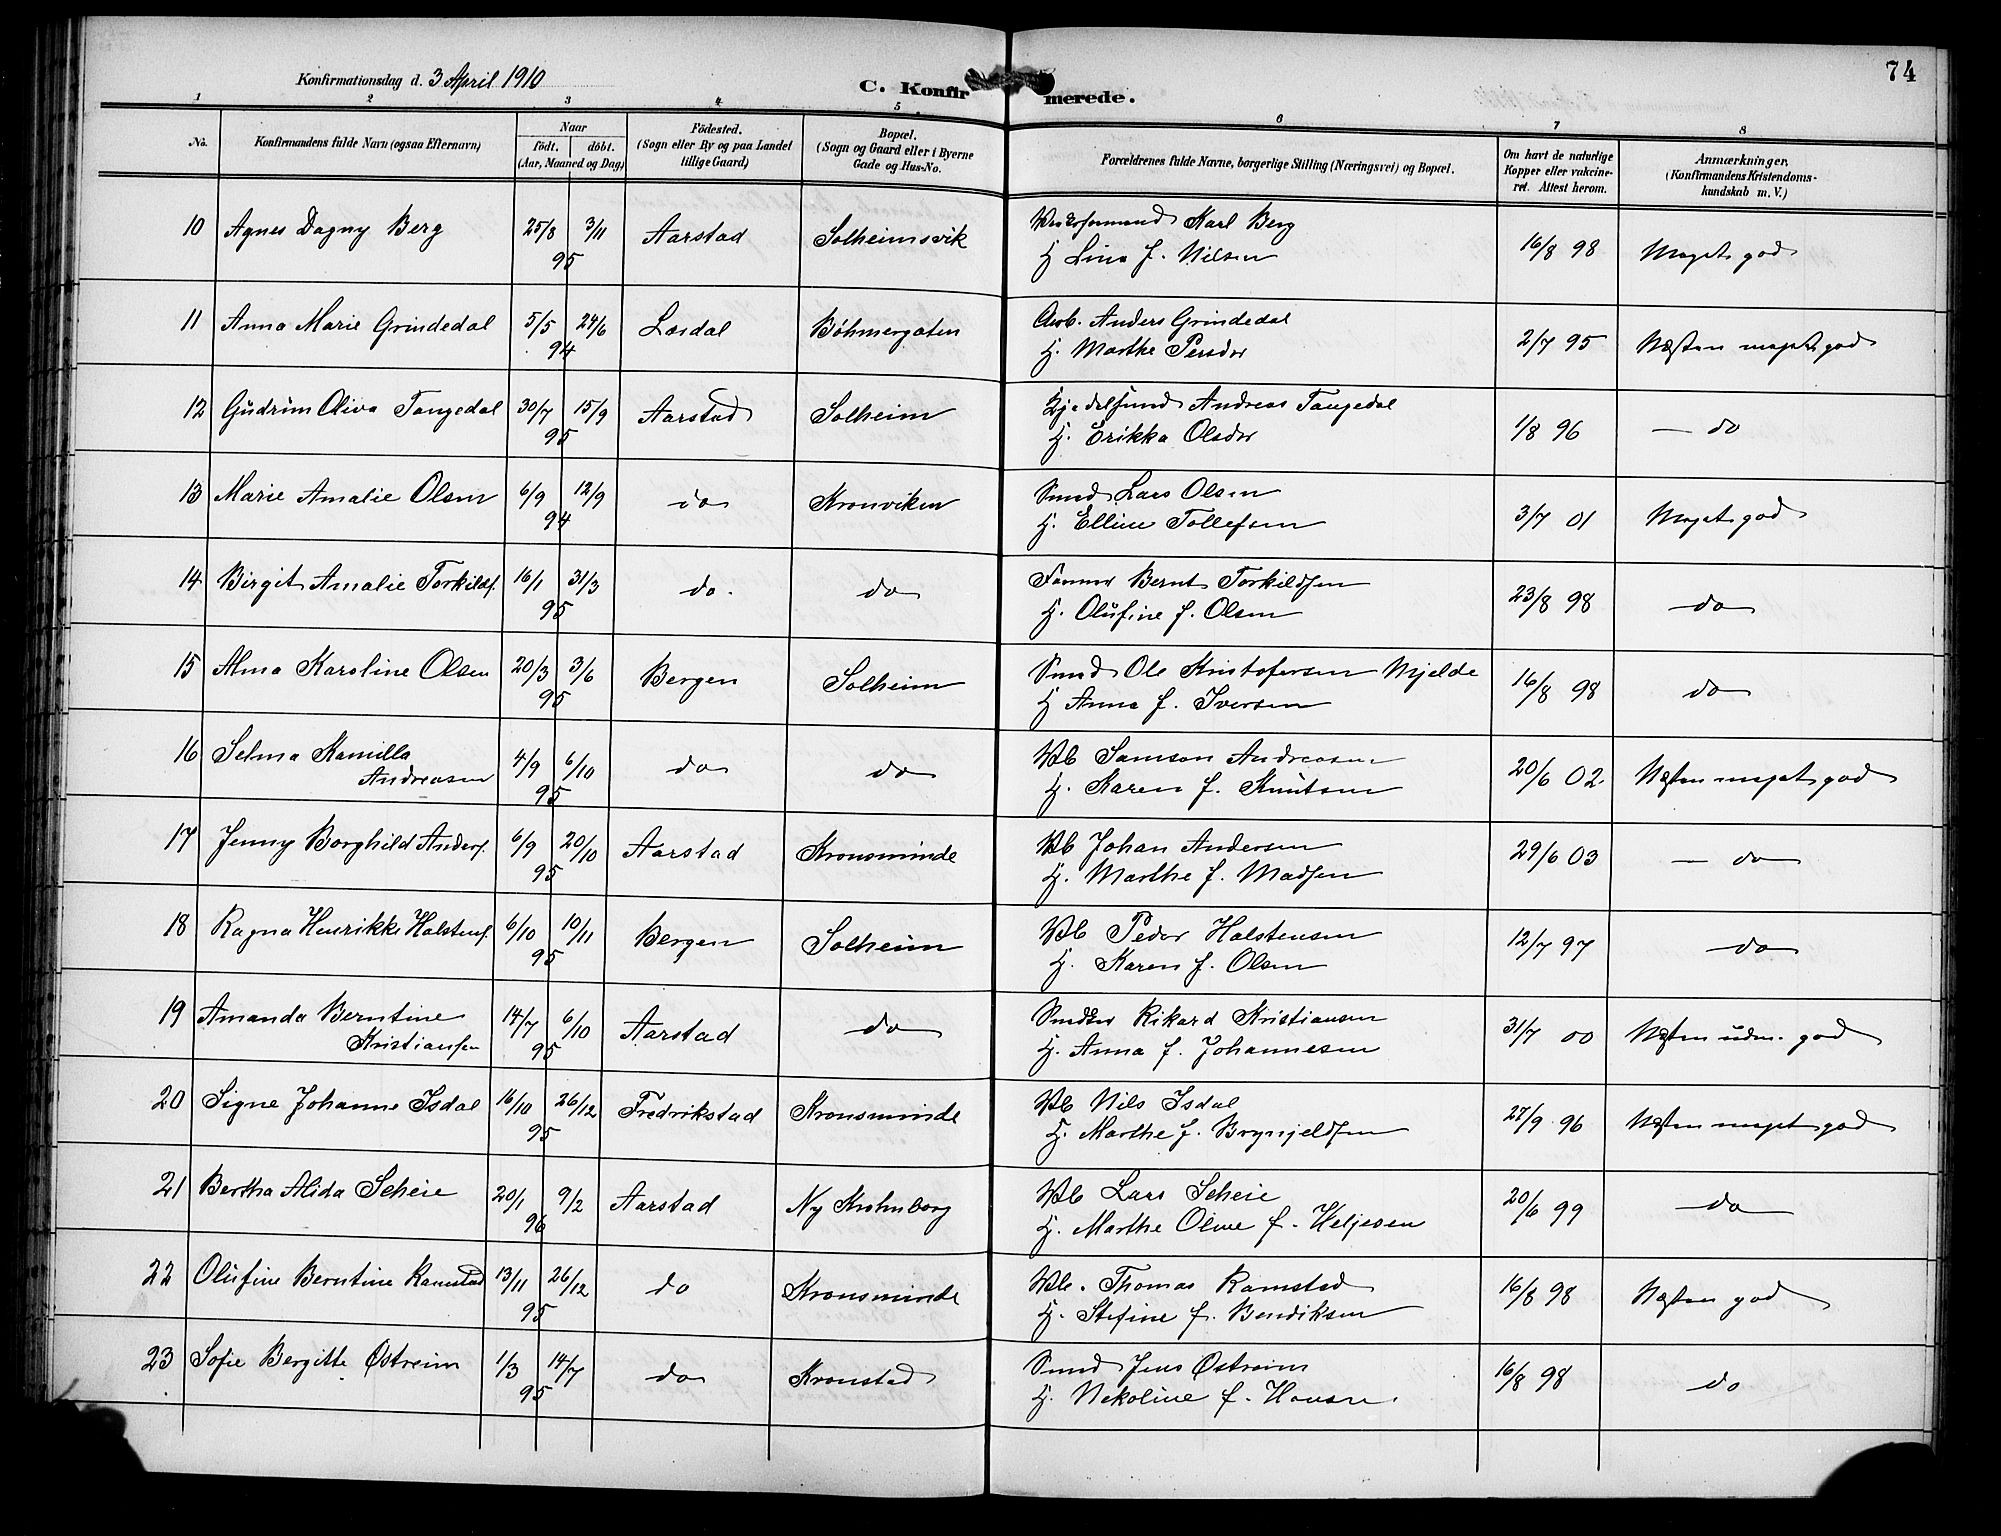 74
Konfirmationsdag d. 3 April 1910
C. Konfirmerede.
1 2 3 4 5 6 7 8
No.
Konfirmandens fulde Navn (ogsaa Efternavn)
Naar
födt. döbt.
(Aar, Maaned og Dag)
Födested.
(Sogn eller By og paa Landet
tillige Gaard)
Bopæl.
(Sogn og Gaard eller i Byerne
Gade og Hus-No.
Forældrenes fulde Navne, borgerlige Stilling (Næringsvei) og Bopæl.
Om havt de naturlige
Kopper eller vakcine-
ret. Attest herom.
Anmærkninger.
(Konfirmandens Kristendoms-
kundskab m. V.)
10 Agnes Dagny Berg 25/8 3/11 95 Aarstad Solheimsvik
Verksformand Karl Berg
H Lina f. Nilsen
16/8 98 Meget god
11 Anna Marie Grindedal 5/5 24/6 94 Lærdal Böhmergaten
Arb. Anders Grindedal
H. Marthe Persdr
2/7 95 Næsten meget god
12 Gudrun Oliva Tangedal 30/7 15/9 95 Aarstad Solheim
Kjedelsmed Andreas Tangedal
H. Erikka Olsdr
1/8 96 — do
13 Marie Amalie Olsen 6/9 12/9 94 do Kronviken
Smed Lars Olsen
H. Elline Tollefsen
3/7 01 Meget god
14 Birgit Amalie Torkilds. 16/1 31/3 95 do. do
Former Bernt Torkildsen
H. Olufine f. Olsen
23/8 98 do
15 Alma Karoline Olsen 20/3 3/6 95 Bergen Solheim
Smed Ole Kristofersen Mjelde
H Anna f. Iversen
16/8 98 do
16 Selma Kamilla
Andreasen 4/9 6/10 95 do do
Vb Samson Andreasen
H. Karen f. Knutsen
20/6 02. Næsten meget god
17 Jenny Borghild Anders. 6/9 20/10 95 Aarstad Kronsminde
Vb Johan Andersen
H. Marthe f. Madsen
29/6 03 — do
18 Ragna Henrikke Halstens. 6/10 10/11 95 Bergen Solheim
Vb Peder Halstensen
H. Karen f. Olsen
12/7 97 do
19 Amanda Berntine
Kristiansen 14/7 6/10 95 Aarstad do
Rikard Kristiansen
H. Anna f. Johannesen
31/7 00 Næsten udm. god
20 Signe Johanne Isdal 16/10 26/12 95 Fredrikstad Kronsminde
Vb Nils Isdal
H. Marthe f. Brynjeldsen
27/9 96 Næsten meget god
21 Bertha Alida Scheie 20/1 9/2 96 Aarstad Ny Krohnborg
Vb Lars Scheie
H. Marthe Oline f. Heljesen
20/6 99 do
22 Olufine Berntine Ramstad 13/11 26/12 95 do Kronsminde
Vb. Thomas Ramstad
H. Stefine f. Bendiksen
16/8 98 Næsten god
23 Sofie Bergitte Østreim 1/3 14/7 95 do Kronstad
Smed Jens Østreim
H. Nekoline f. Hansen.
16/8 98 do